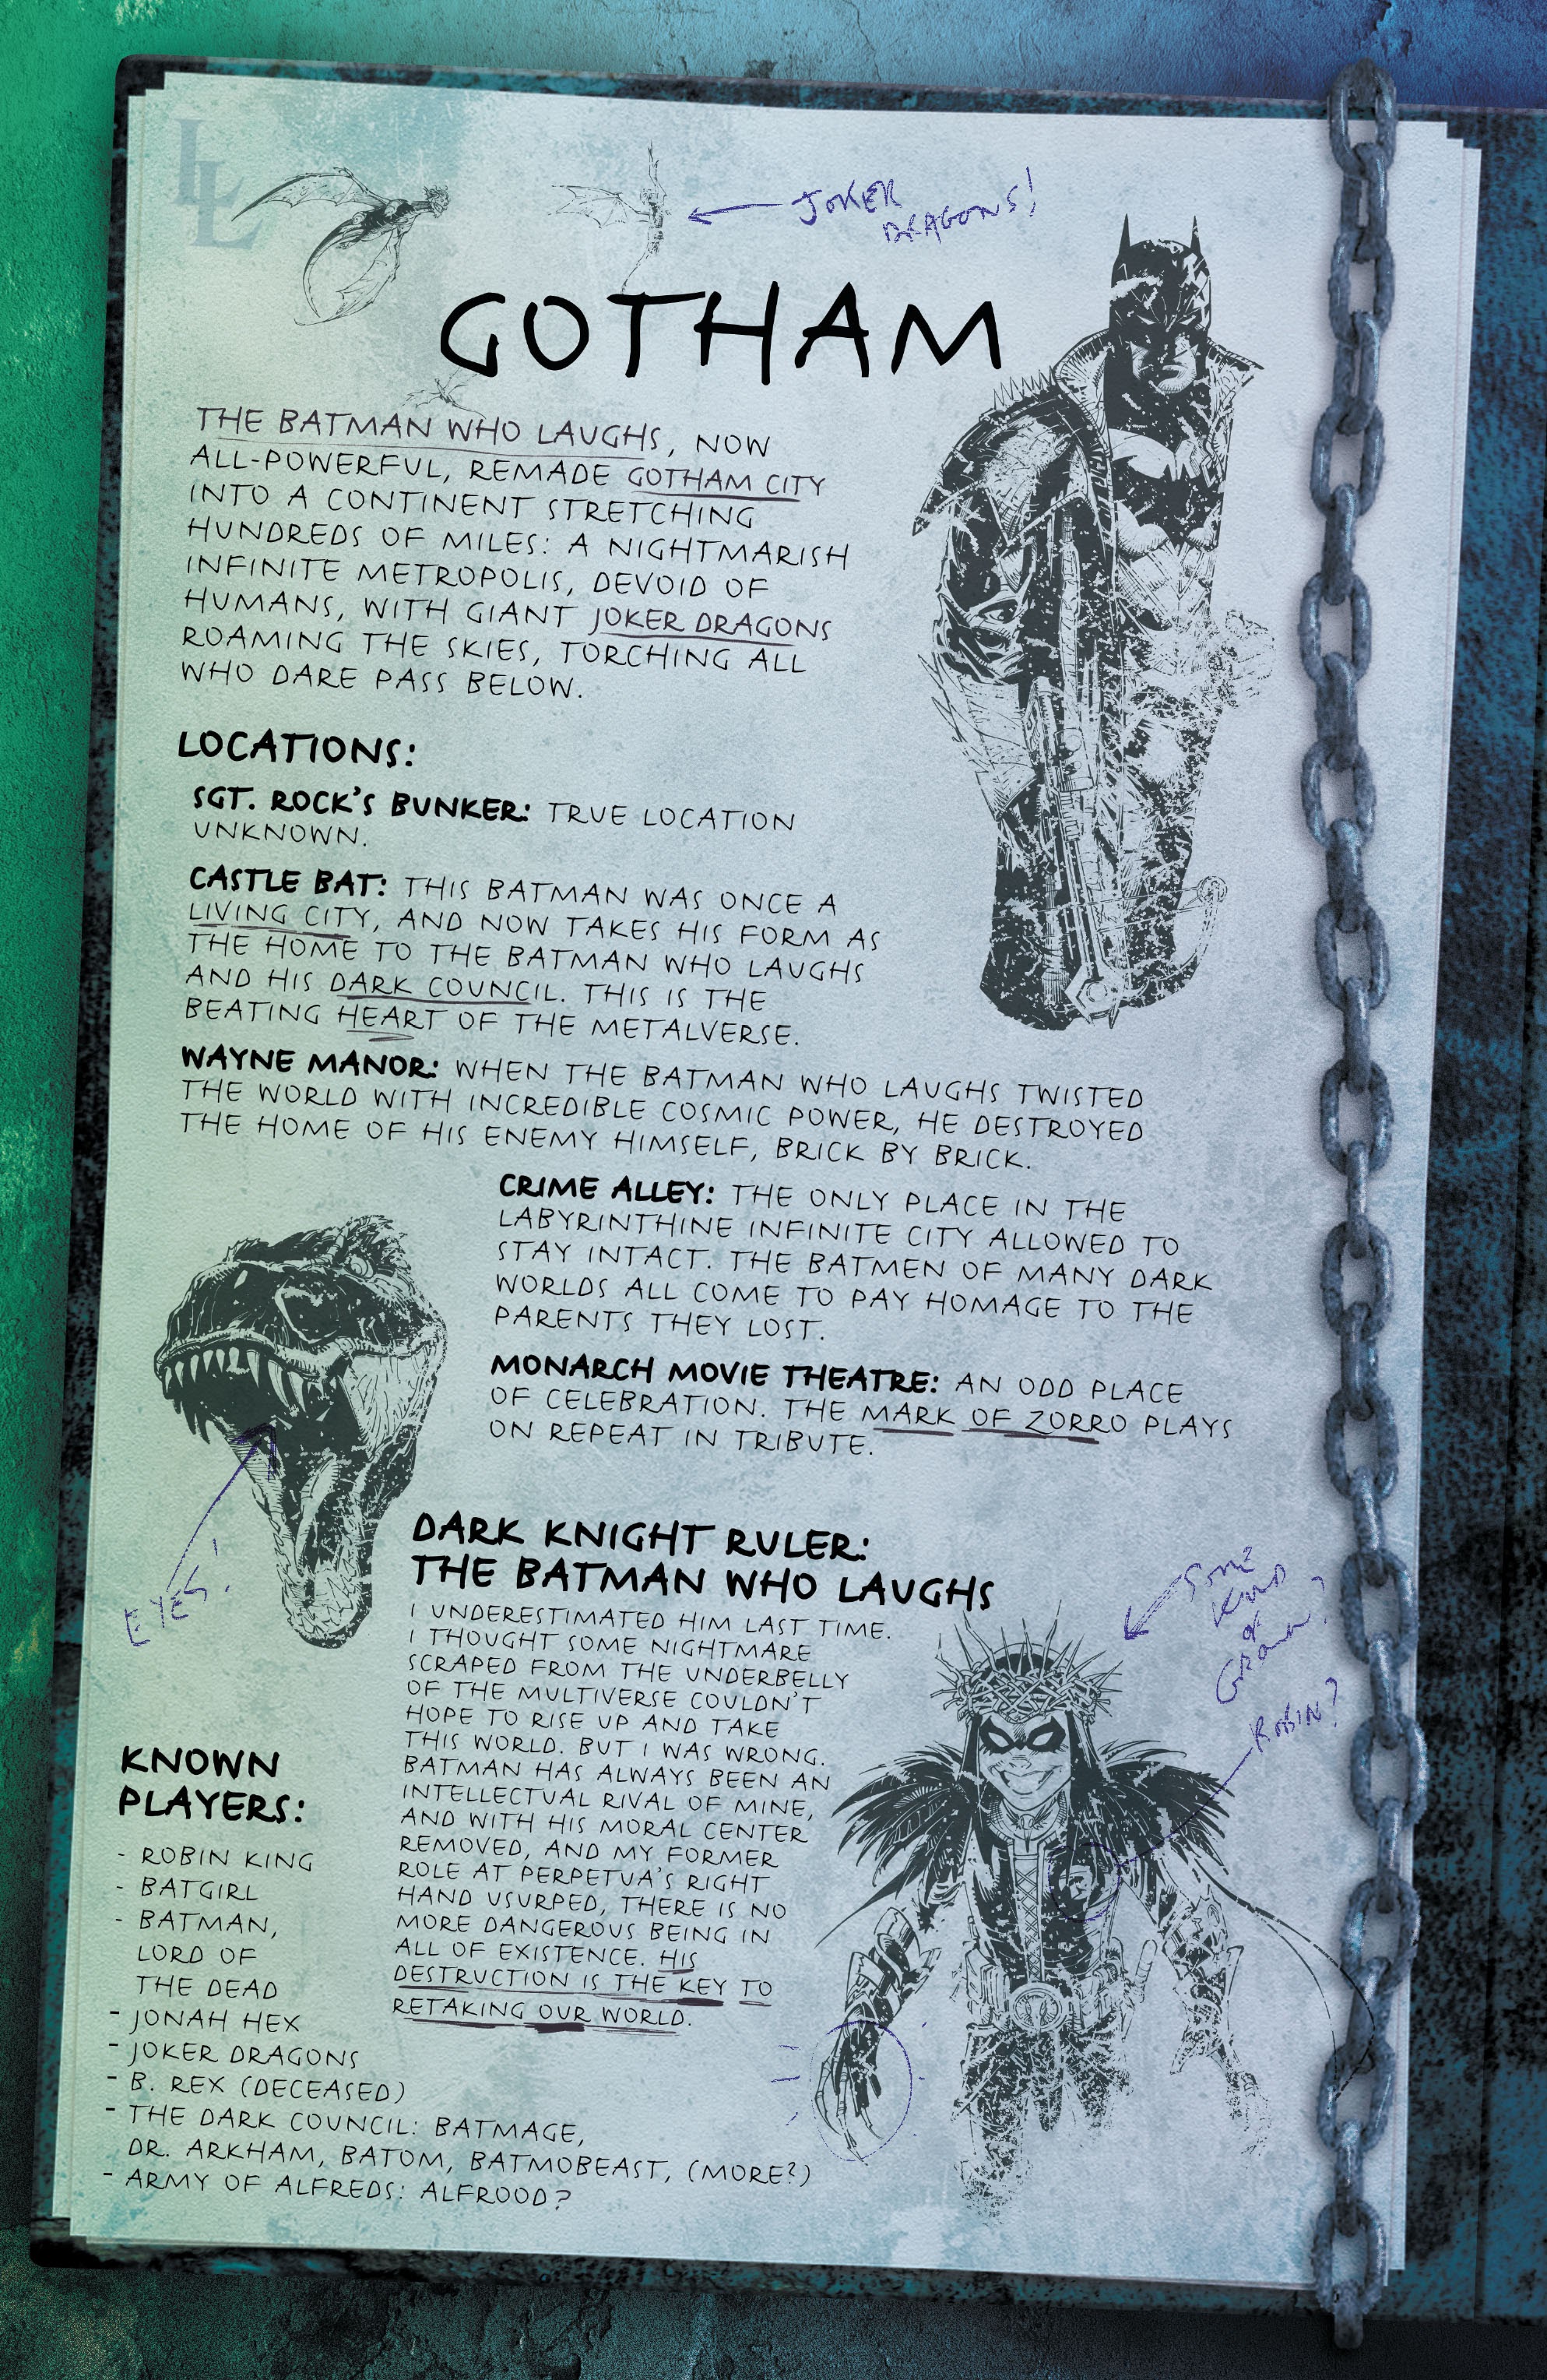 LL
JOKER
DRAGONS!
GOTHAM
THE BATMAN WHO LAUGHS, NOW
ALL-POWERFUL, REMADE GOTHAM CITY
INTO A CONTINENT STRETCHING
HUNDREDS OF MILES: A NIGHTMARISH
INFINITE METROPOLIS, DEVOID OF
HUMANS, WITH GIANT JOKER DRAGONS
ROAMING THE SKIES, TORCHING ALL
WHO DARE PASS BELOW.
LOCATIONS:
SGT. ROCK'S BUNKER: TRUE LOCATION
UNKNOWN.
CASTLE BAT: THIS BATMAN WAS ONCE A
LIVING CITY, AND NOW TAKES HIS FORM AS
THE HOME TO THE BATMAN WHO LAUGHS
AND HIS DARK COUNCIL. THIS IS THE
BEATING HEART OF THE METALVERSE.
WAYNE MANOR: WHEN THE BATMAN WHO LAUGHS TWISTED
THE WORLD WITH INCREDIBLE COSMIC POWER, HE DESTROYED
THE HOME OF HIS ENEMY HIMSELF, BRICK BY BRICK.
CRIME ALLEY: THE ONLY PLACE IN THE
LABYRINTHINE INFINITE CITY ALLOWED TO
STAY INTACT. THE BATMEN OF MANY DARK
WORLDS ALL COME TO PAY HOMAGE TO THE
PARENTS THEY LOST.
MONARCH MOVIE THEATRE: AN ODD PLACE
OF CELEBRATION. THE MARK OF ZORRO PLAYS
ON REPEAT IN TRIBUTE.
EYES!
DARK KNIGHT RULER:
THE BATMAN WHO LAUGHS
I UNDERESTIMATED HIM LAST TIME.
I THOUGHT SOME NIGHTMARE
SCRAPED FROM THE UNDERBELLY
OF THE MULTIVERSE COULDN'T
HOPE TO RISE UP AND TAKE
THIS WORLD. BUT I WAS WRONG.
BATMAN HAS ALWAYS BEEN AN
INTELLECTUAL RIVAL OF MINE,
AND WITH HIS MORAL CENTER
REMOVED, AND MY FORMER
ROLE AT PERPETUA'S RIGHT
HAND USURPED, THERE IS NO
MORE DANGEROUS BEING IN
ALL OF EXISTENCE. HIS
DESTRUCTION IS THE KEY TO
RETAKING OUR WORLD.
SOME
KIND
OF
CROWN?
ROBIN?
KNOWN
PLAYERS:
- ROBIN KING
- BATGIRL
- BATMAN,
LORD OF
THE DEAD
- JONAH HEX
- JOKER DRAGONS
- B. REX (DECEASED)
- THE DARK COUNCIL: BATMAGE,
DR. ARKHAM, BATOM, BATMOBEAST, (MORE?)
- ARMY OF ALFREDS: ALFROOD?